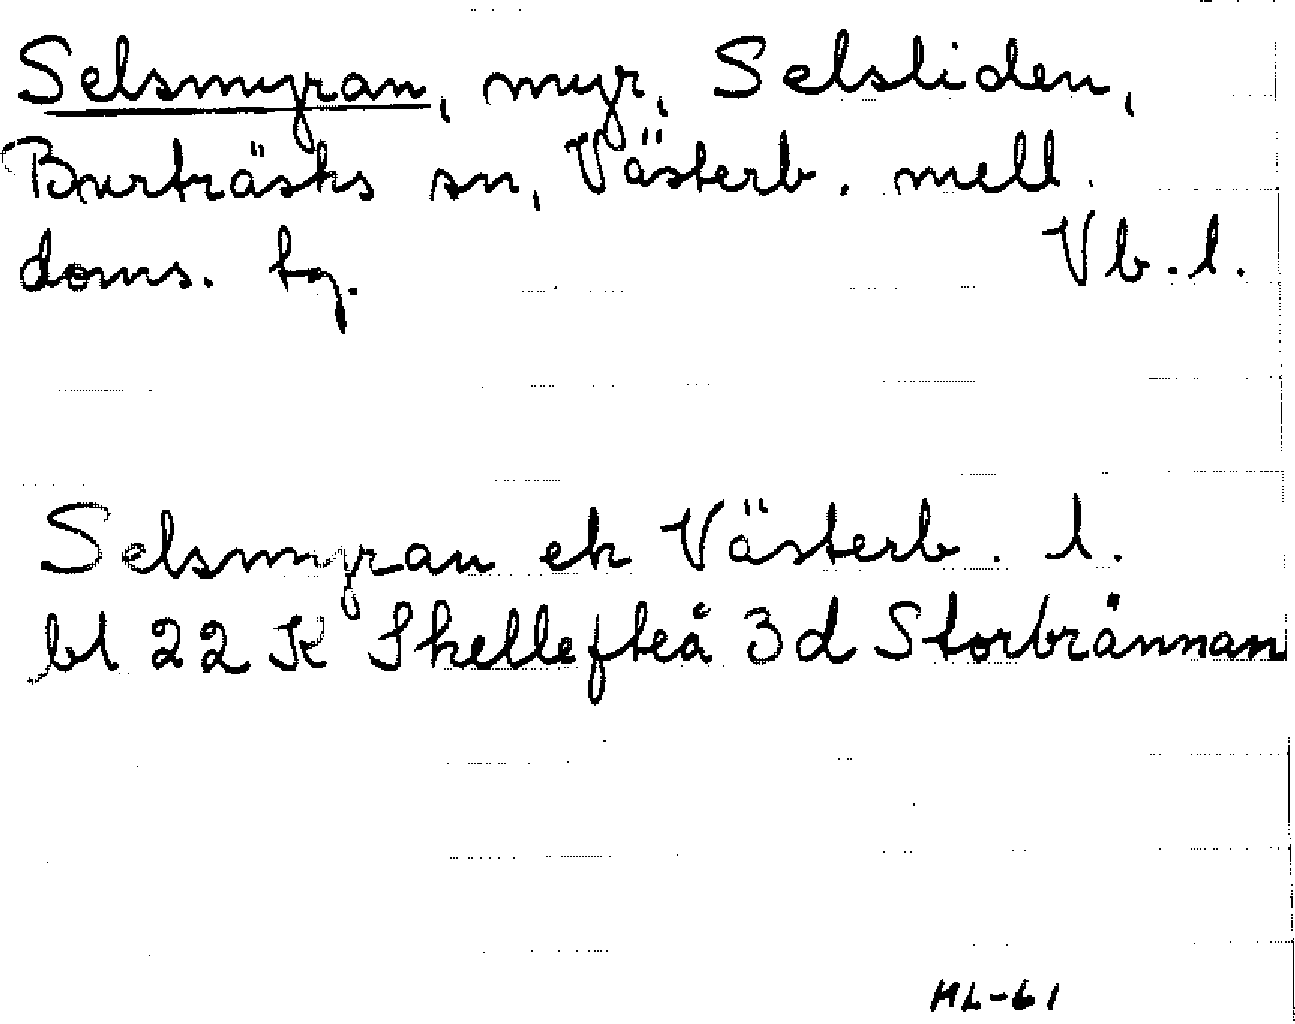 Selsmyran, myr, Selsliden,
Burträsks sn, Västerb. mell.
doms. tg. Vb. l.
Selsmyran ek Västerb. l.
bl 22 K Skellefteå 3d Storbrännan
HL-61